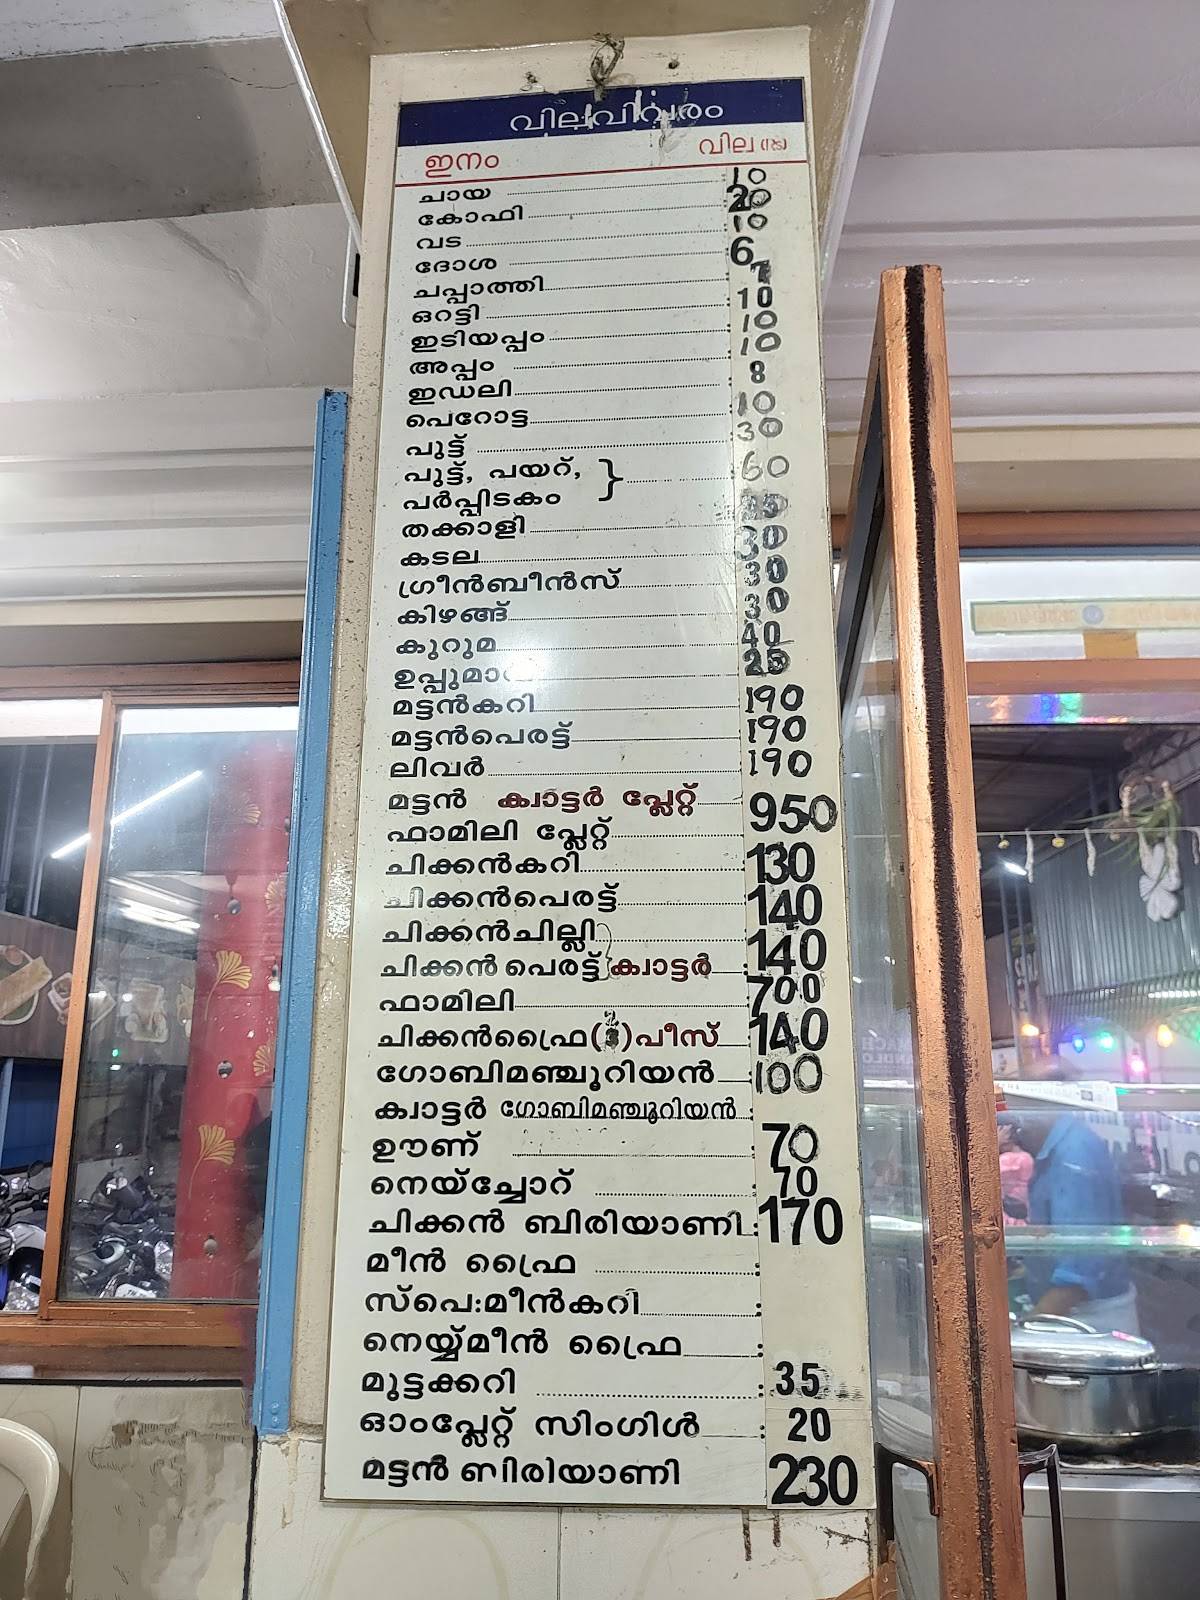 വിലവിവരം
ഇനം വില (രൂ)
ചായ 10
കോഫി 20
വട 10
ദോശ 6
ചപ്പാത്തി 7
ഒറട്ടി 10
ഇടിയപ്പം 10
അപ്പം 10
ഇഡലി 8
പെറോട്ട 10
പുട്ട് 30
പുട്ട്, പയറ്, } 60
പർപ്പിടകം
തക്കാളി
കടല 30
ഗ്രീൻബീൻസ് 30
കിഴങ്ങ് 30
കുറുമ 40
ഉപ്പുമാ 25
മട്ടൻകറി 190
മട്ടൻപെരട്ട് 190
ലിവർ 190
മട്ടൻ ക്വാട്ടർ പ്ലേറ്റ്
ഫാമിലി പ്ലേറ്റ് 950
ചിക്കൻകറി 130
ചിക്കൻപെരട്ട് 140
ചിക്കൻചില്ലി 140
ചിക്കൻ പെരട്ട് ക്വാട്ടർ
ഫാമിലി 700
ചിക്കൻഫ്രൈ ( )പീസ് 140
ഗോബിമഞ്ചൂറിയൻ 100
ക്വാട്ടർ ഗോബിമഞ്ചൂറിയൻ :
ഊണ് 70
നെയ്ച്ചോറ് : 70
ചിക്കൻ ബിരിയാണി : 170
മീൻ ഫ്രൈ :
സ്പെ:മീൻകറി :
നെയ്മീൻ ഫ്രൈ :
മുട്ടക്കറി : 35
ഓംപ്ലേറ്റ് സിംഗിൾ : 20
മട്ടൻ ബിരിയാണി 230